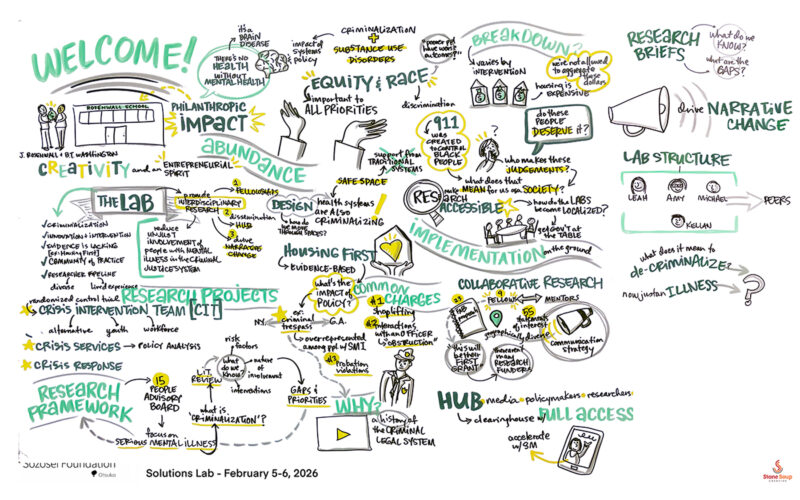 WELCOME!
it's a
BRAIN
DISEASE
THERE'S NO
HEALTH
WITHOUT
MENTAL HEALTH
impact of
systems
+ policy
CRIMINALIZATION
+
SUBSTANCE USE
DISORDERS
EQUITY & RACE
important to
ALL PRIORITIES
discrimination
ROSENWALL SCHOOL
J. ROSENWALL + B.T. WASHINGTON
PHILANTHROPIC
IMPACT
CREATIVITY and an
ENTREPRENEURIAL
SPIRIT
ABUNDANCE
THE LAB
provide
INTERDISCIPLINARY
RESEARCH
1
FELLOWSHIPS
2
dissemination
HUB
3
drive
NARRATIVE
CHANGE
reduce
UNJUST
INVOLVEMENT OF
people WITH MENTAL
ILLNESS IN THE CRIMINAL
JUSTICE SYSTEM
✓ CRIMINALIZATION
✓ INNOVATION + INTERVENTION
✓ EVIDENCE IS LACKING
(ex: Housing First)
✓ COMMUNITY OF PRACTICE
✓ RESEARCHER PIPELINE
diverse lived experience
DESIGN
how do we
move THROUGH
spaces?
support from
TRADITIONAL
SYSTEMS
SAFE SPACE
health systems
are ALSO
CRIMINALIZING
HOUSING FIRST
EVIDENCE-BASED
BREAKDOWN?
varies by
INTERVENTION
we're not allowed
to aggregate
these
dollars
housing is
EXPENSIVE
911
was
CREATED to CONTROL
BLACK PEOPLE
do these
PEOPLE
DESERVE it?
?
who makes these
JUDGEMENTS?
what does that
MEAN for us as a SOCIETY?
make
RESEARCH
ACCESSIBLE
how do the LABS
become LOCALIZED?
get GOV'T at
the TABLE
IMPLEMENTATION
on the ground
RESEARCH
BRIEFS
what do we
KNOW?
what are
the GAPS?
drive NARRATIVE
CHANGE
LAB STRUCTURE
LEAH
AMY
MICHAEL
KELLAN
PEERS
what does it mean to
de-CRIMINALIZE?
now just an ILLNESS
?
RESEARCH PROJECTS
randomized control trial
CRISIS INTERVENTION TEAM [CIT]
alternative youth workforce
CRISIS SERVICES → POLICY ANALYSIS
CRISIS RESPONSE
what's the
IMPACT of
POLICY?
N.Y.
ex:
criminal
trespass
G.A.
overrepresented
among ppl w/ SMI
COMMON
CHARGES
#1
shoplifting
#2
interactions
with an OFFICER
"OBSTRUCTION"
#3
Probation
violations
COLLABORATIVE RESEARCH
9
FELLOWS
MENTORS
55
statements
of interest
geographically diverse
communication
strategy
"this will
be their
FIRST
GRANT"
RESEARCH
FRAMEWORK
15
PEOPLE
ADVISORY
BOARD
focus on
SERIOUS MENTAL ILLNESS
LIT
REVIEW
what is
'CRIMINALIZATION'?
what
do we
know?
risk
factors
nature of
involvement
interventions
GAPS &
PRIORITIES
WHY?
a history of
the CRIMINAL
LEGAL SYSTEM
HUB media policymakers researchers
FULL ACCESS
clearinghouse w/
accelerate
w/ SM
Sozosei Foundation
Otsuka
Solutions Lab - February 5-6, 2026
Stone Soup
CREATIVE